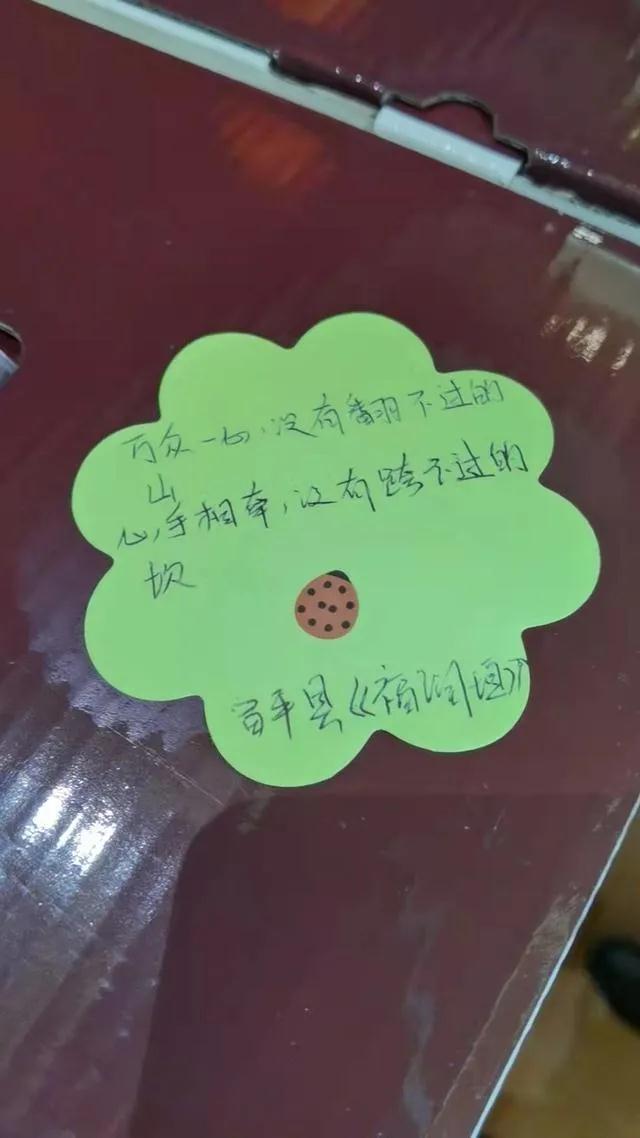 万众一心,没有翻不过的
山
心手相牵,没有跨不过的
坎
富平县《福润恒》